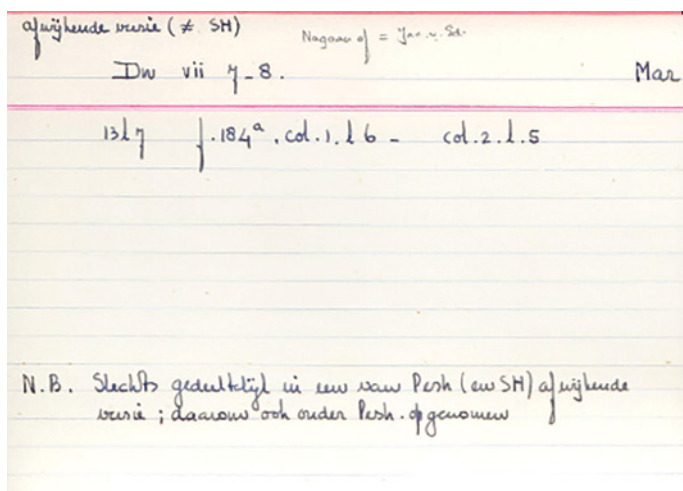 afwijkende versie (≠ SH)
Nagaan of = Jac. v. Ed.
Dn vii 7-8.
Mar
13l7 f.184ᵃ, col.1. l 6 - col.2.l.5
N.B. Slechts gedeeltelijk in een van Pesh (en SH) afwijkende
versie ; daarom ook onder Pesh. opgenomen